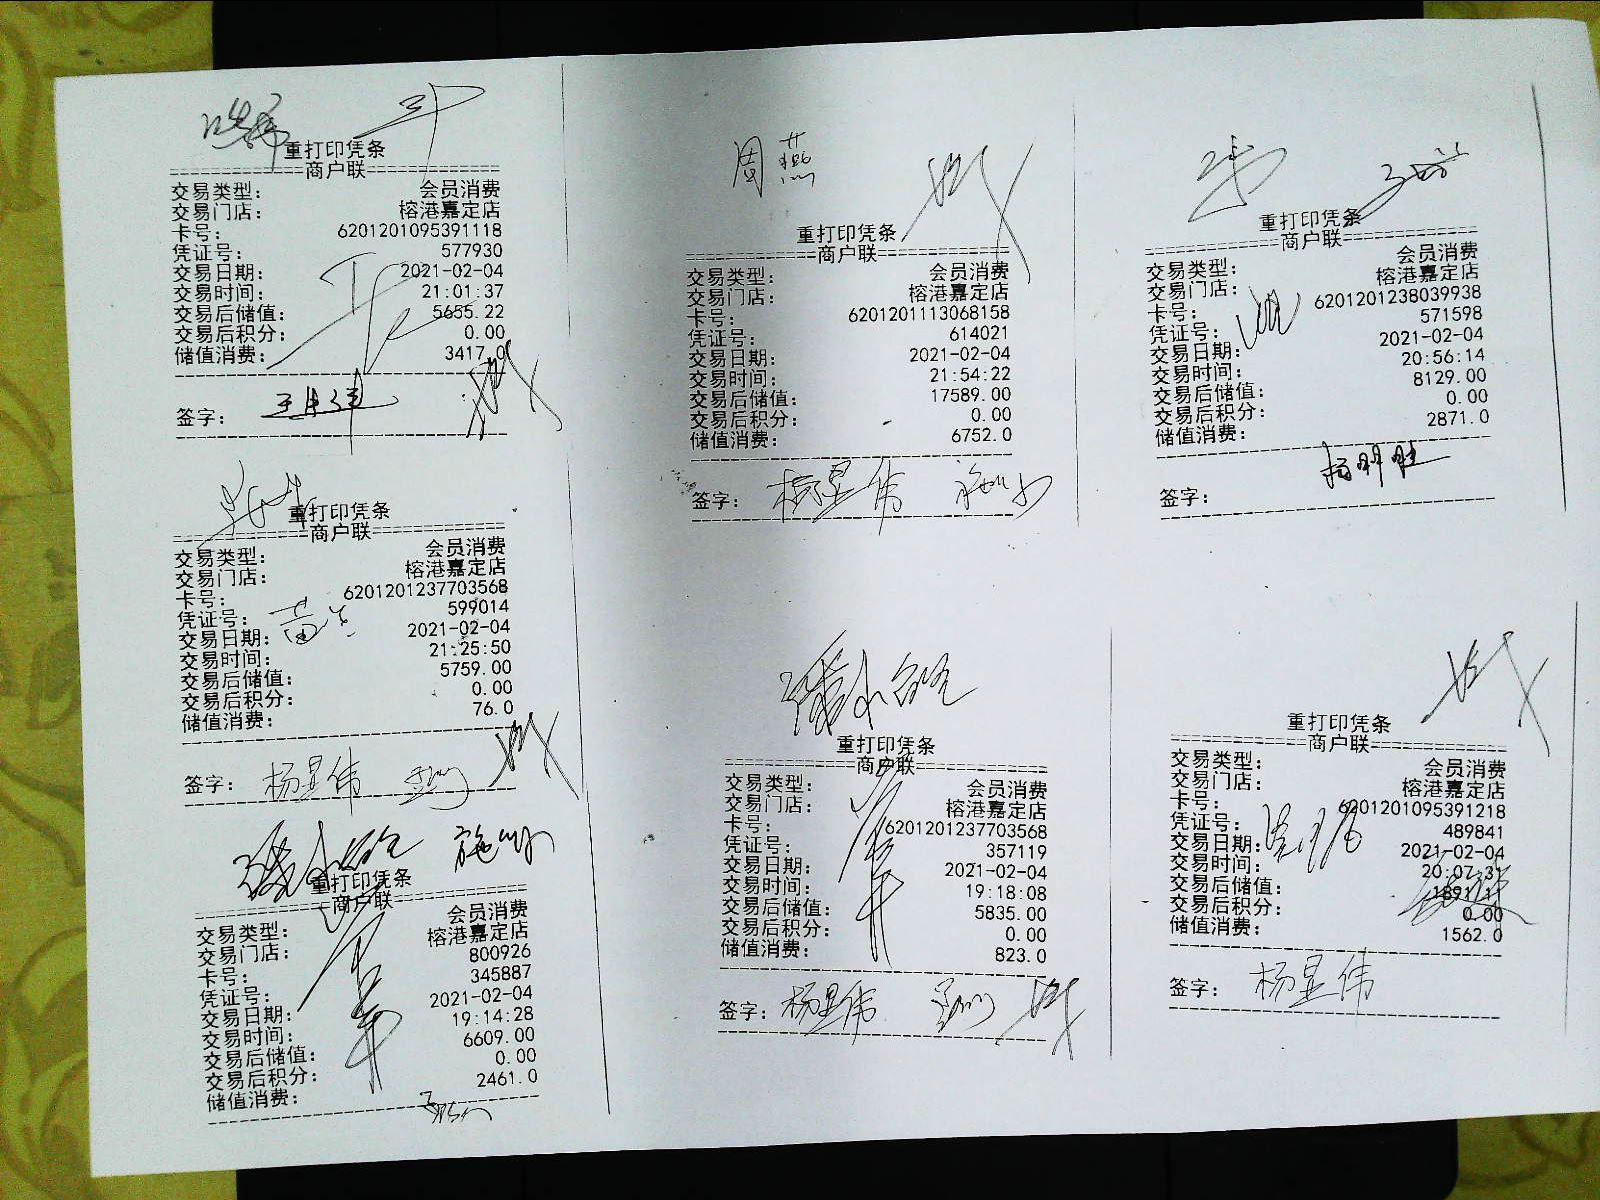 重打印凭条
商户联
交易类型: 会员消费
交易门店: 榕港嘉定店
卡号: 6201201095391118
凭证号: 577930
交易日期: 2021-02-04
交易时间: 21:01:37
交易后储值: 5655.22
交易后积分: 0.00
储值消费: 3417.0
签字:
重打印凭条
商户联
交易类型: 会员消费
交易门店: 榕港嘉定店
卡号: 6201201237703568
凭证号: 599014
交易日期: 2021-02-04
交易时间: 21:25:50
交易后储值: 5759.00
交易后积分: 0.00
储值消费: 76.0
签字: 杨昱伟
重打印凭条
商户联
交易类型: 会员消费
交易门店: 榕港嘉定店
卡号: 800926
凭证号: 345887
交易日期: 2021-02-04
交易时间: 19:14:28
交易后储值: 6609.00
交易后积分: 0.00
储值消费: 2461.0
周燕
重打印凭条
商户联
交易类型: 会员消费
交易门店: 榕港嘉定店
卡号: 6201201113068158
凭证号: 614021
交易日期: 2021-02-04
交易时间: 21:54:22
交易后储值: 17589.00
交易后积分: 0.00
储值消费: 6752.0
签字: 杨昱伟
重打印凭条
商户联
交易类型: 会员消费
交易门店: 榕港嘉定店
卡号: 6201201237703568
凭证号: 357119
交易日期: 2021-02-04
交易时间: 19:18:08
交易后储值: 5835.00
交易后积分: 0.00
储值消费: 823.0
签字: 杨昱伟
重打印凭条
商户联
交易类型: 会员消费
交易门店: 榕港嘉定店
卡号: 6201201238039938
凭证号: 571598
交易日期: 2021-02-04
交易时间: 20:56:14
交易后储值: 8129.00
交易后积分: 0.00
储值消费: 2871.0
签字:
重打印凭条
商户联
交易类型: 会员消费
交易门店: 榕港嘉定店
卡号: 6201201095391218
凭证号: 489841
交易日期: 2021-02-04
交易时间: 20:07:31
交易后储值:
交易后积分: 0.00
储值消费: 1562.0
签字: 杨昱伟